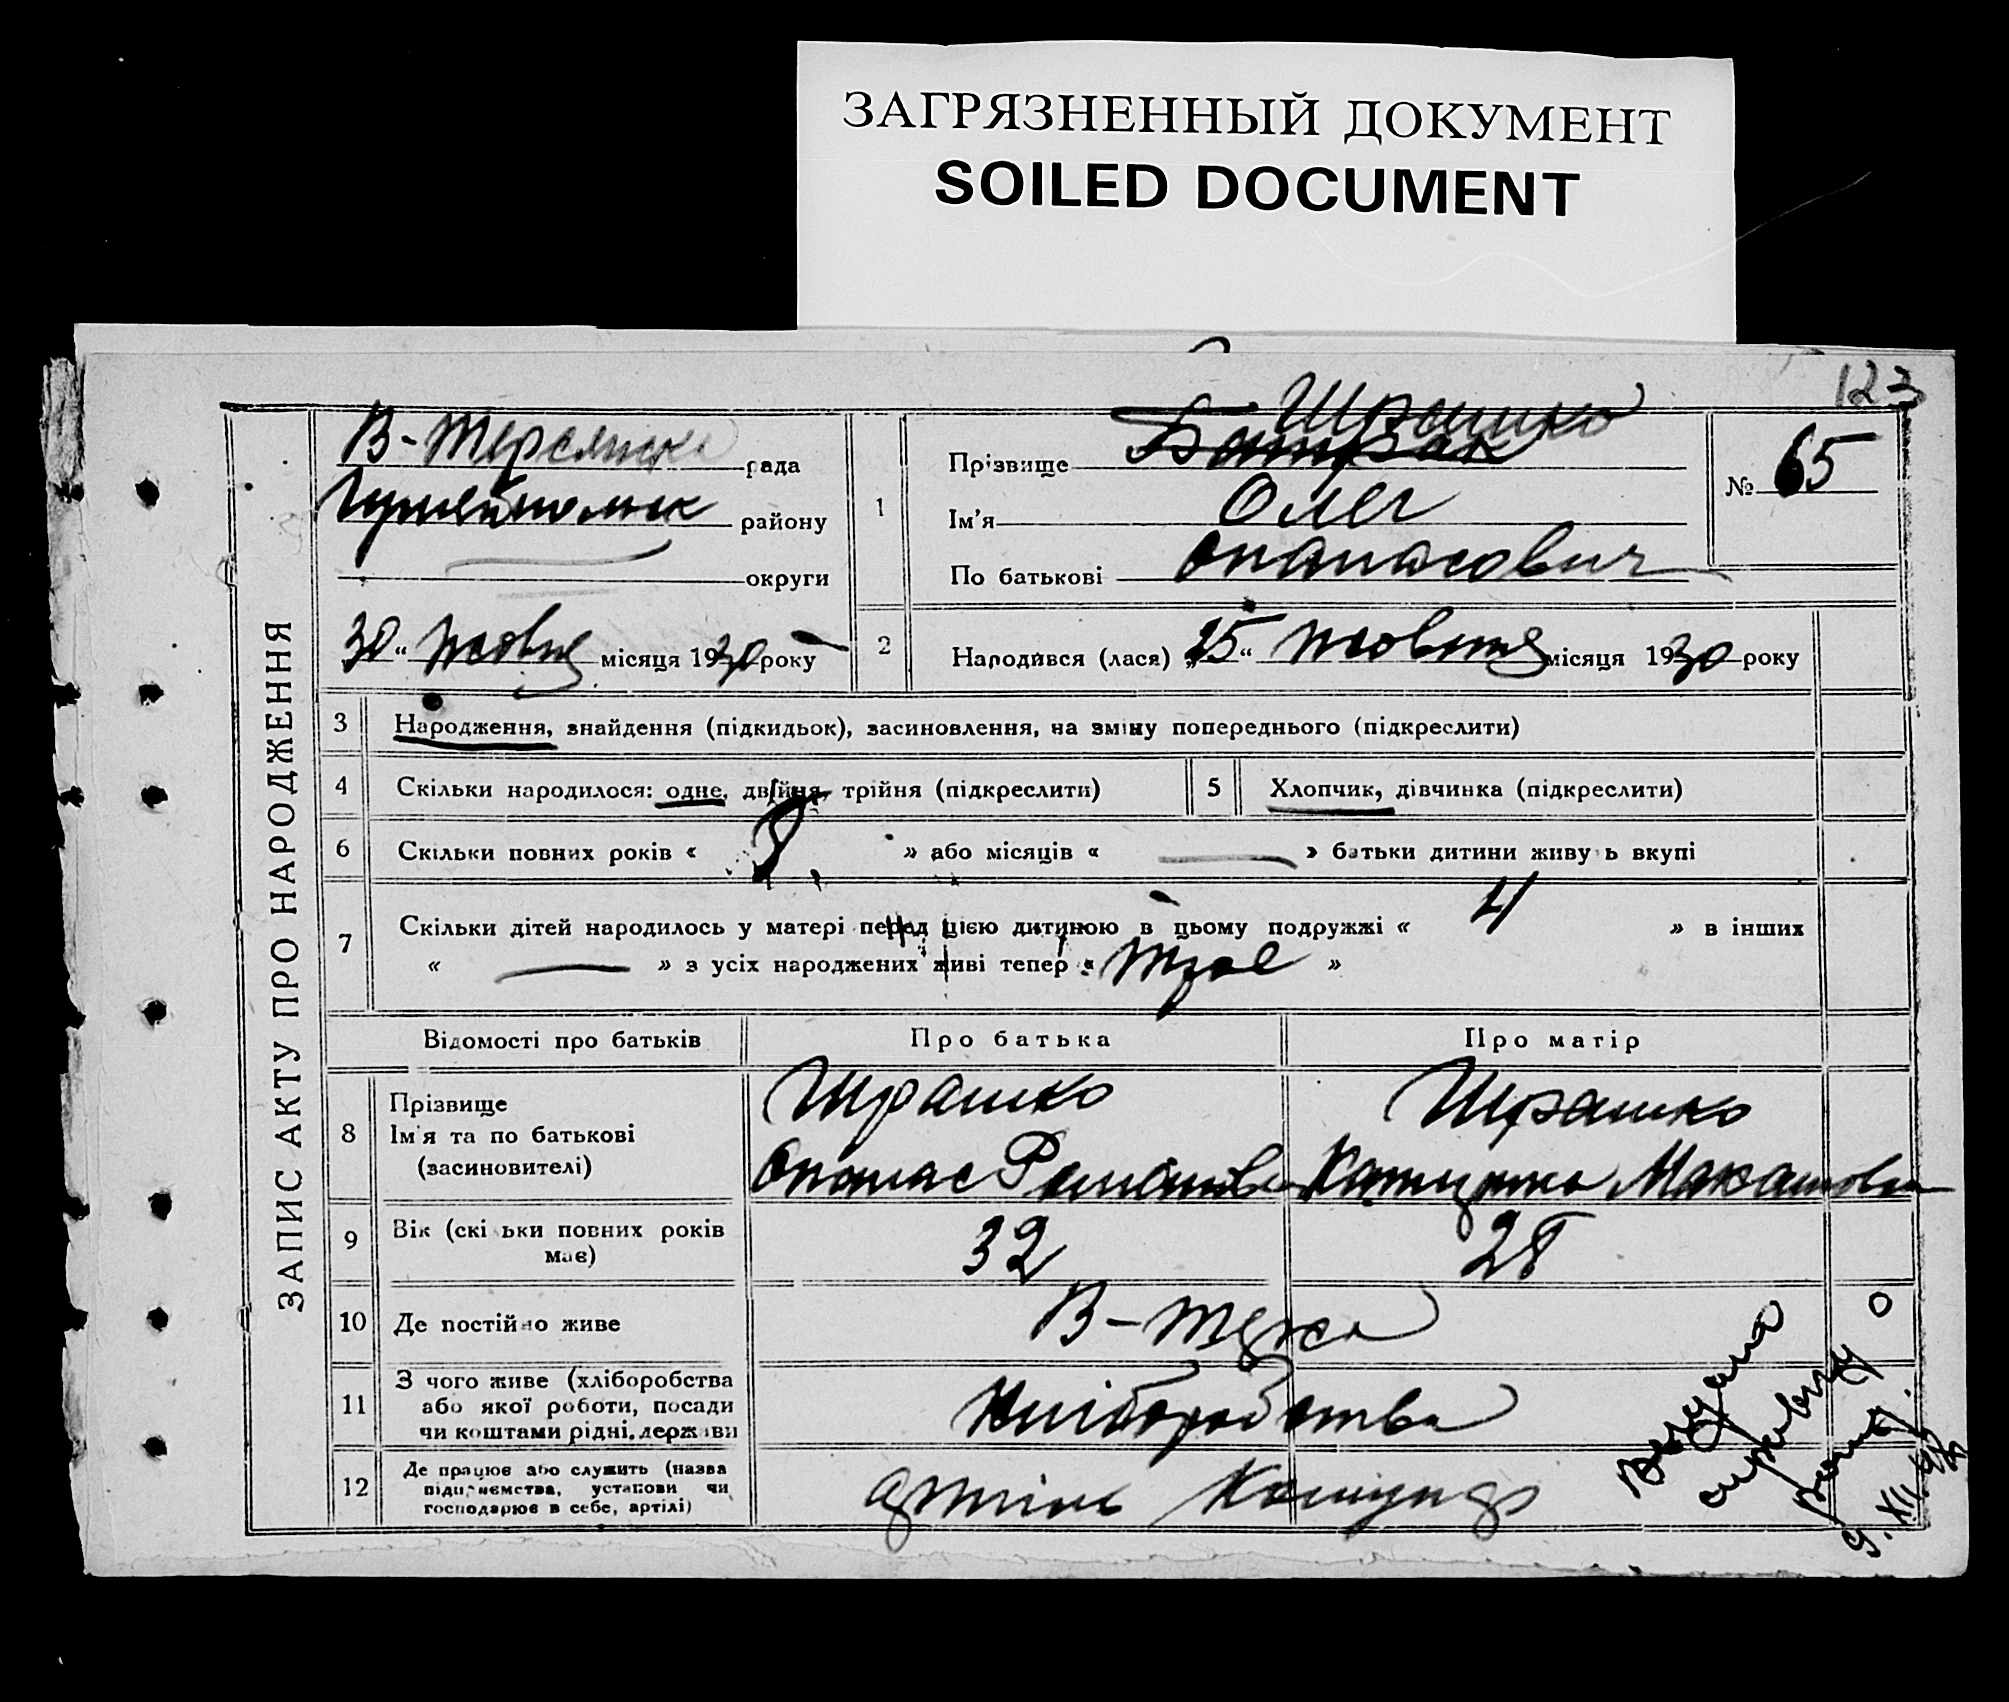 ЗАГРЯЗНЕННЫЙ ДОКУМЕНТ
SOILED DOCUMENT
123
ЗАПИС АКТУ ПРО НАРОДЖЕННЯ
В- рада
району
округи
30 " жовтня місяця 1930 року
1
Прізвище Батрак Шрашко
Ім'я Олег
По батькові Опанасович
№ 65
2 Народився (лася) „25“ жовтня місяця 1930 року
3 Народження, знайдення (підкидьок), засиновлення, на зміну попереднього (підкреслити)
4 Скільки народилося: одне, двійня, трійня (підкреслити)
5 Хлопчик, дівчинка (підкреслити)
6 Скільки повних років « 8 » або місяців « — » батьки дитини живуть вкупі
7 Скільки дітей народилось у матері перед цією дитиною в цьому подружжі « 4 » в інших
« — » з усіх народжених живі тепер « троє »
Відомості про батьків Про батька Про матір
8 Прізвище
Ім'я та по батькові
(засиновителі)
Шрашко
Опанас
Шрашко
9 Вік (скільки повних років
має)
32
28
10 Де постійно живе
11 З чого живе (хліборобства
або якої роботи, посади
чи коштами рідні, держави
Хліборобства
12 Де працює або служить (назва
підприємства, установи чи
господарює в себе, артілі)
артіль
9.XII.